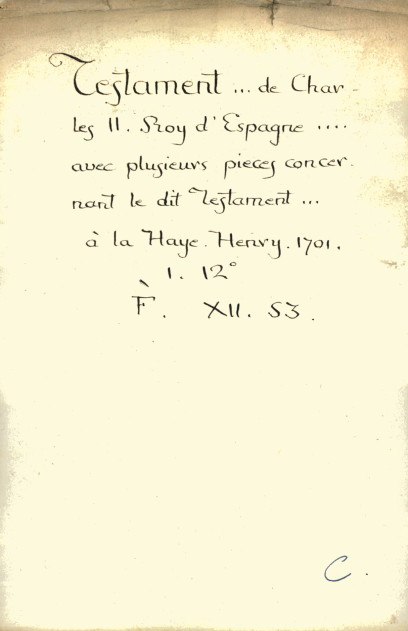 Testament ... de Char-
les II. Roy d'Espagne ....
avec plusieurs pieces concer-
nant le dit Testament ...
à la Haye. Henry. 1701.
1. 12°
F̀. XII. 53.
C.